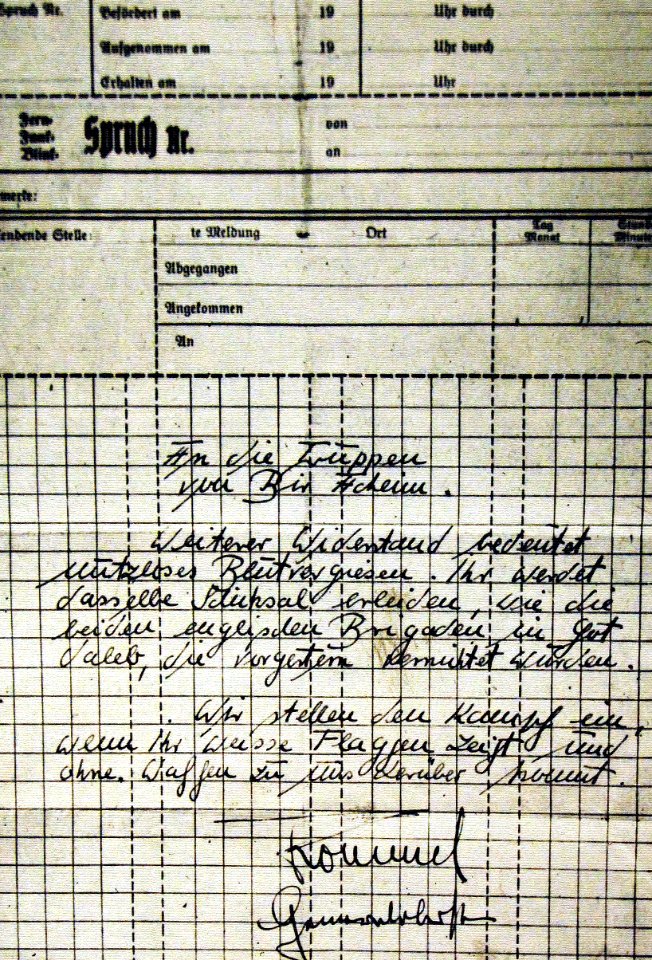 Spruch Nr. Befördert am 19 Uhr durch
Aufgenommen am 19 Uhr durch
Erhalten am 19 Uhr
Fern-
Funk-
Blink-
Spruch Nr.
von
an
merke:
sendende Stelle: te Meldung Ort Tag Monat Stunde Minute
Abgegangen
Angekommen
An
An die Truppen
von Bir Acheim.
Weiterer Widerstand bedeutet
nutzloses Blutvergiesen. Ihr werdet
dasselbe Schiksal erleiden, wie die
beiden englischen Brigaden in Got
Ualeb, die vorgestern vernichtet wurden.
Wir stellen den Kampf ein,
wenn Ihr weisse Flaggen zeigt und
ohne Waffen zu uns herüber kommt.
Rommel
Generaloberst